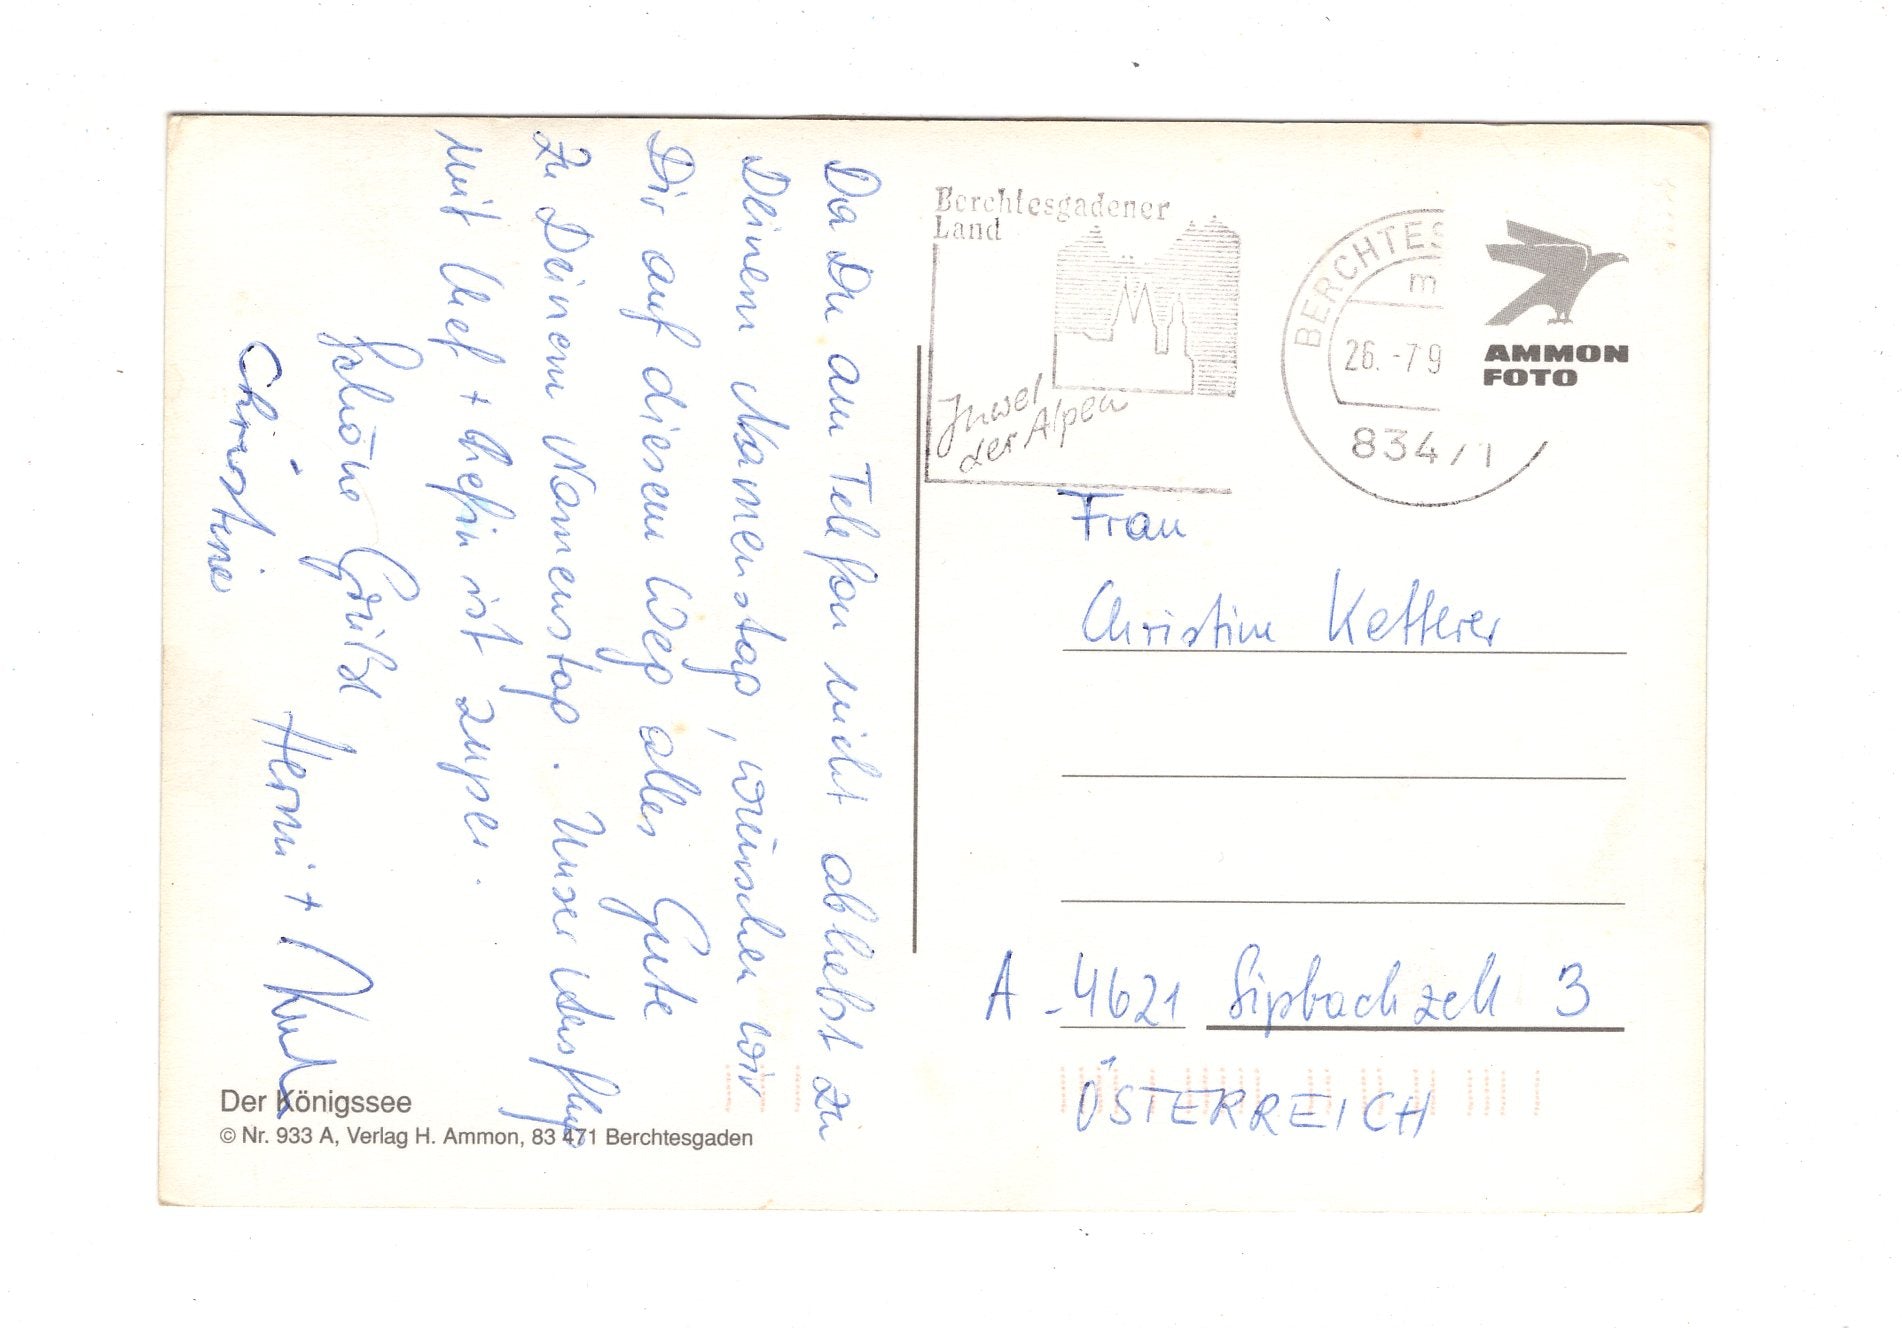 Da Du am Telefon nicht abhebst zu
Deinem Namenstag, wünschen wir
Dir auf diesem Weg alles Gute
zu Deinem Namenstag. Unser Ausflug
mit Chef + Chefin ist super.
Schöne Grüße
Christine Hermi +
Der Königssee
© Nr. 933 A, Verlag H. Ammon, 83 471 Berchtesgaden
Berchtesgadener
Land
Juwel
der Alpen
BERCHTES
m
26. -7 9
83471
AMMON
FOTO
Frau
Christine Ketterer
A - 4621 Sipbachzell 3
ÖSTERREICH